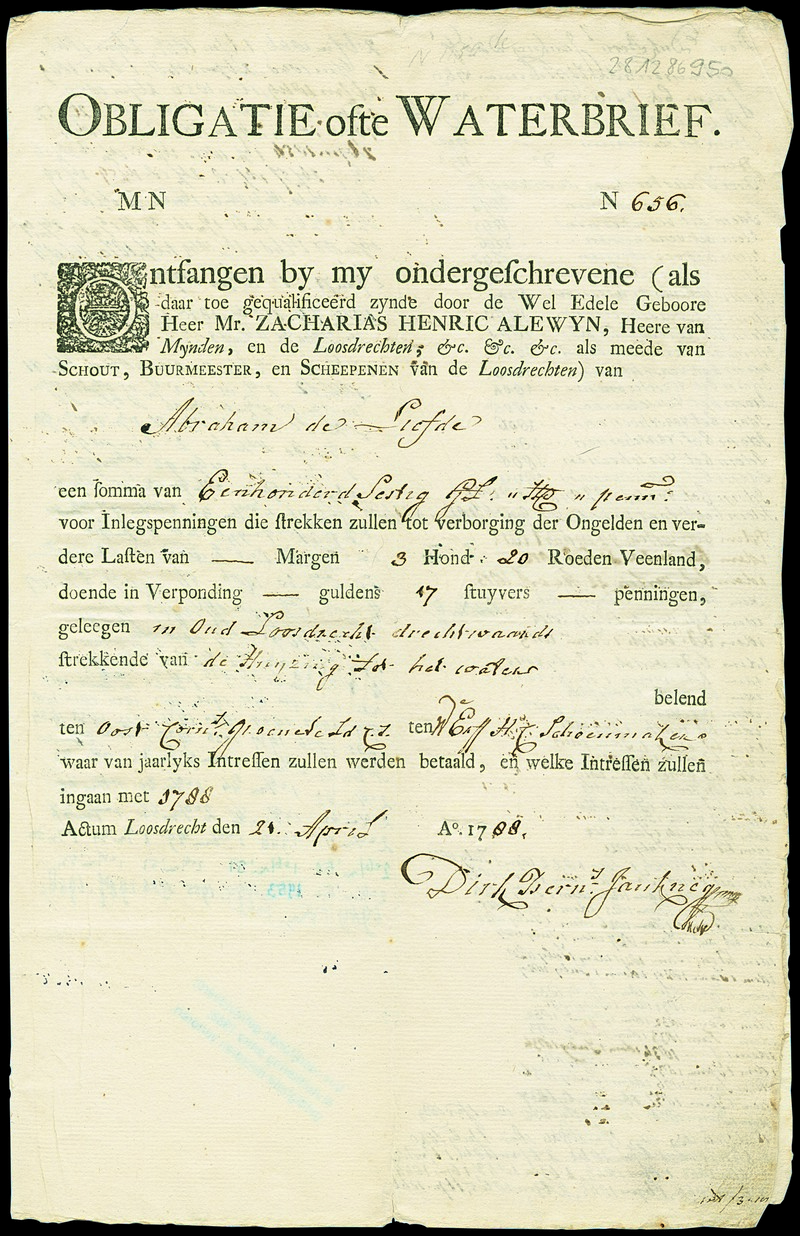 28128695o
OBLIGATIE ofte WATERBRIEF.
MN N 656.
Ontfangen by my ondergeſchrevene (als
daar toe gequalificeerd zynde door de Wel Edele Geboore
Heer Mr. ZACHARIAS HENRIC ALEWYN, Heere van
Mynden, en de Loosdrechten; &c. &c. &c. als meede van
SCHOUT, BUURMEESTER, en SCHEEPENEN van de Loosdrechten) van
Abraham de Liefde
een ſomma van Eenhonderd Sestig Gl: " Stp " penn:
voor Inlegspenningen die ſtrekken zullen tot verborging der Ongelden en ver-
dere Laſten van — Margen 3 Hond: 20 Roeden Veenland,
doende in Verponding — guldens 17 ſtuyvers — penningen,
geleegen in Oud Loosdrecht drechtwaands
ſtrekkende van de Huyzing tot het water
belend
ten Oost Corn:s Groeneveld ten W de Erff H: C: Schoenmaker
waar van jaarlyks Intreſſen zullen werden betaald, en welke Intreſſen zullen
ingaan met 1788
Actum Loosdrecht den 21 April Ao. 1788.
Dirk